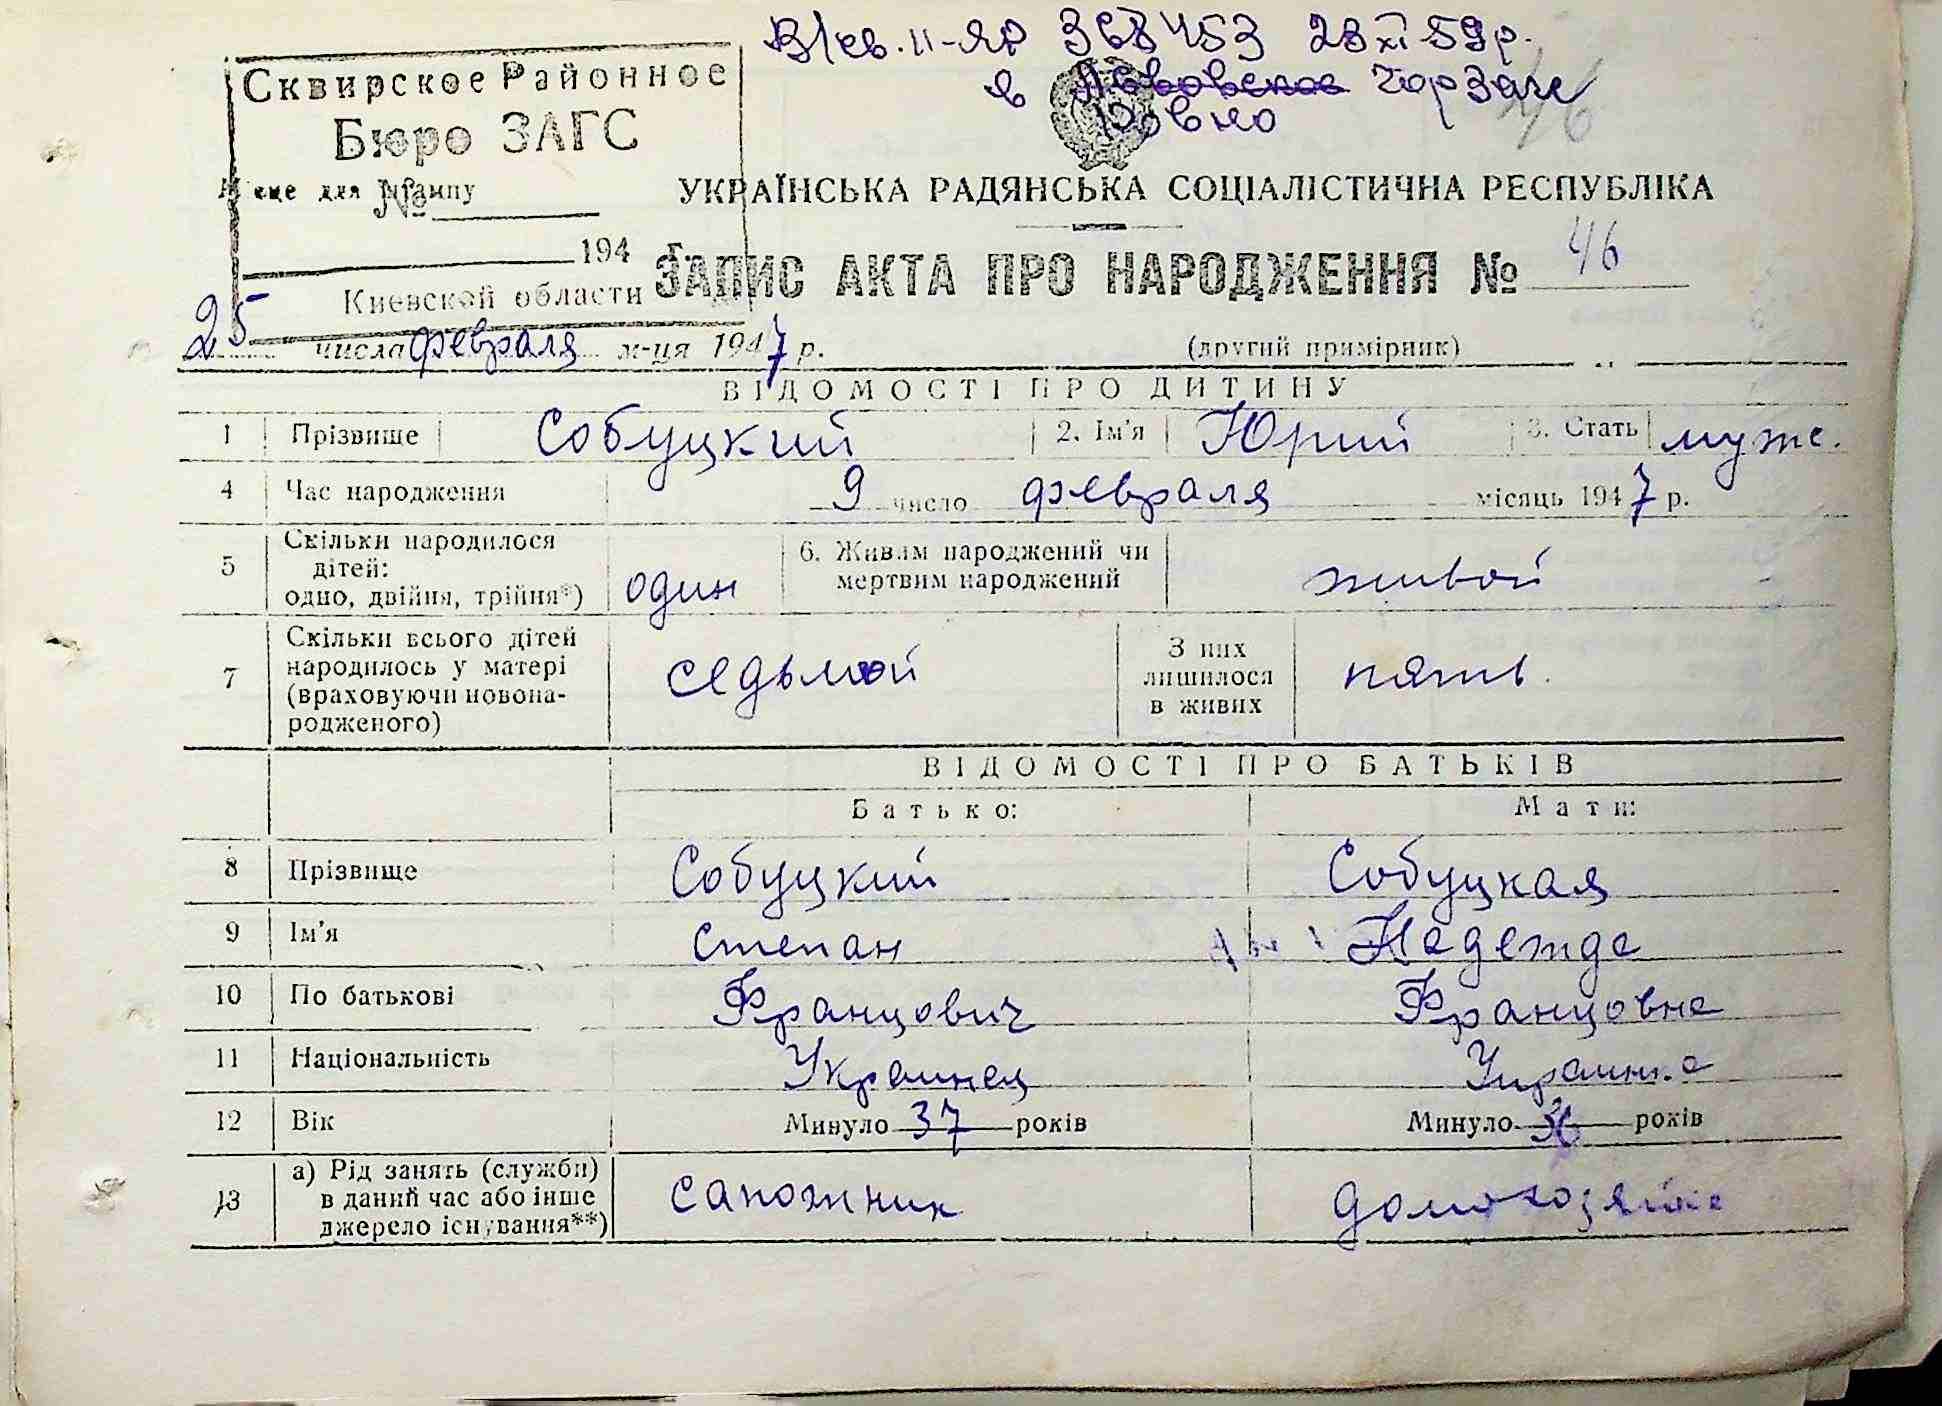 В/св. II-ЯР 368453 28 XI 59 р.
в Львовское Горзаге
Ровно
46
Сквирское Районное
Бюро ЗАГС
Місце для штампу
№
194
Киевской области
УКРАЇНСЬКА РАДЯНСЬКА СОЦІАЛІСТИЧНА РЕСПУБЛІКА
ЗАПИС АКТА ПРО НАРОДЖЕННЯ № 46
25 числа февраля м-ця 1947 р. (другий примірник)
ВІДОМОСТІ ПРО ДИТИНУ
1 Прізвище Собуцкий 2. Ім'я Юрий 3. Стать муж.
4 Час народження 9 число февраля місяць 1947 р.
5 Скільки народилося дітей: одно, двійня, трійня*) один 6. Живим народжений чи мертвим народжений живой
7 Скільки всього дітей народилось у матері (враховуючи новона-родженого) седьмой З них лишилося в живих пять.
ВІДОМОСТІ ПРО БАТЬКІВ
Батько: Мати:
8 Прізвище Собуцкий Собуцкая
9 Ім'я Степан Надежда
10 По батькові Францович Францовна
11 Національність Украинец Украинка
12 Вік Минуло 37 років Минуло 36 років
13 а) Рід занять (служби) в даний час або інше джерело існування**) сапожник домохозяйка